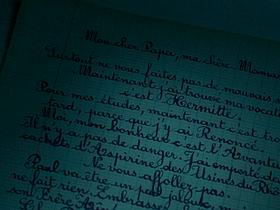 Mon cher Papa, ma chère Maman
Surtout ne vous faites pas de mauvais
Maintenant j'ai trouvé ma vocati
c'est Hermitte.
Pour mes études, maintenant c'est tro
tard, parce que j'y ai Renoncé.
Moi, mon bonheur c'est l'Avant
Il n'y a pas de danger. J'ai emporté des
cachets d'Aspirine des Usines du Rh
Ne vous affolez pas.
Paul va être un peu jaloux, m
ne fait rien. Embrassez
son Frère